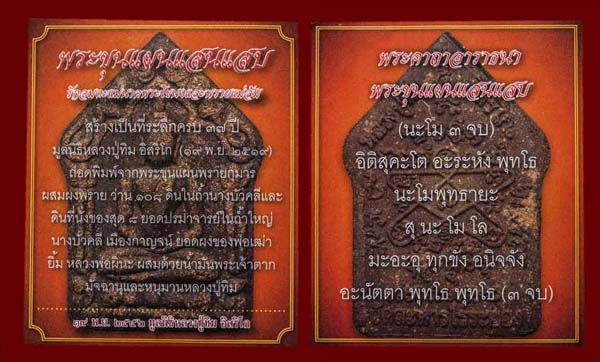 พระขุนแผนแสนแสบ
สร้างเป็นที่ระลึกครบ ๓๗ ปี
มูลนิธิหลวงปู่ทิม อิสริโก (๑๙ พ.ย. ๒๕๑๙)
ถอดพิมพ์จากพระขุนแผนพรายกุมาร
ผสมผงพราย ว่าน ๑๐๘ ดินในถ้านางบัวคลีและ
ดินที่นั่งของสุด ๘ ยอดปรมาจารย์ในถ้ำใหญ่
นางบัวคลี เมืองกาญจน์ ยอดผงของพ่อเฒ่า
ยิ้ม หลวงพ่อผินะ ผสมด้วยน้ำมันพระเจ้าตาก
มัจฉานุและหนุมานหลวงปู่ทิม
๑๙ พ.ย. ๒๕๕๖ มูลนิธิหลวงปู่ทิม อิสริโก
พระคาถาอาราธนา
พระขุนแผนแสนแสบ
(นะโม ๓ จบ)
อิติสุคะโต อะระหัง พุทโธ
นะโมพุทธายะ
สุ นะ โม โล
มะอะอุ ทุกขัง อนิจจัง
อะนัตตา พุทโธ พุทโธ (๓ จบ)